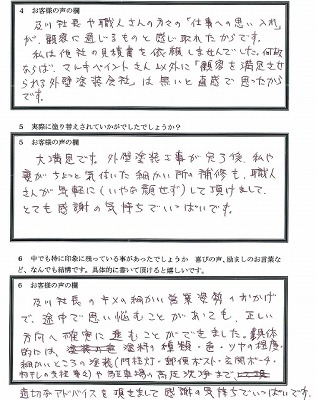 4 お客様の声の欄
及川社長や職人さんの方々の「仕事への思い入れ」
が、顧客に通じるものと感じ取れたからです。
私は他社の見積書を依頼しませんでした。何故
ならば、マルキペイントさん以外に「顧客を満足させ
られる外壁塗装会社」は無いと直感で思ったから
です。
5 実際に塗り替えされていかがでしたでしょうか?
5 お客様の声の欄
大満足です。外壁塗装工事が完了後、私や
妻がちょっと気付いた細かい所の補修も、職人
さんが気軽に(いやな顔せず)して頂けまして、
とても感謝の気持ちでいっぱいです。
6 中でも特に印象に残っている事があったでしょうか 喜びの声、励ましのお言葉な
ど、なんでも結構です。具体的に書いて頂けると嬉しいです。
6 お客様の声の欄
及川社長のキメの細かい営業姿勢のおかげ
で、途中で思い悩むことがあっても、正しい
方向へ確実に進むことができました。具体
的には、塗料の種類・色・ツヤの程度、
細かいところの塗装(門柱灯・郵便ポスト・玄関ポーチ・
物干しの支柱等々)や駐車場の高圧洗浄まで
適切なアドバイスを頂きまして感謝の気持ちでいっぱいです。